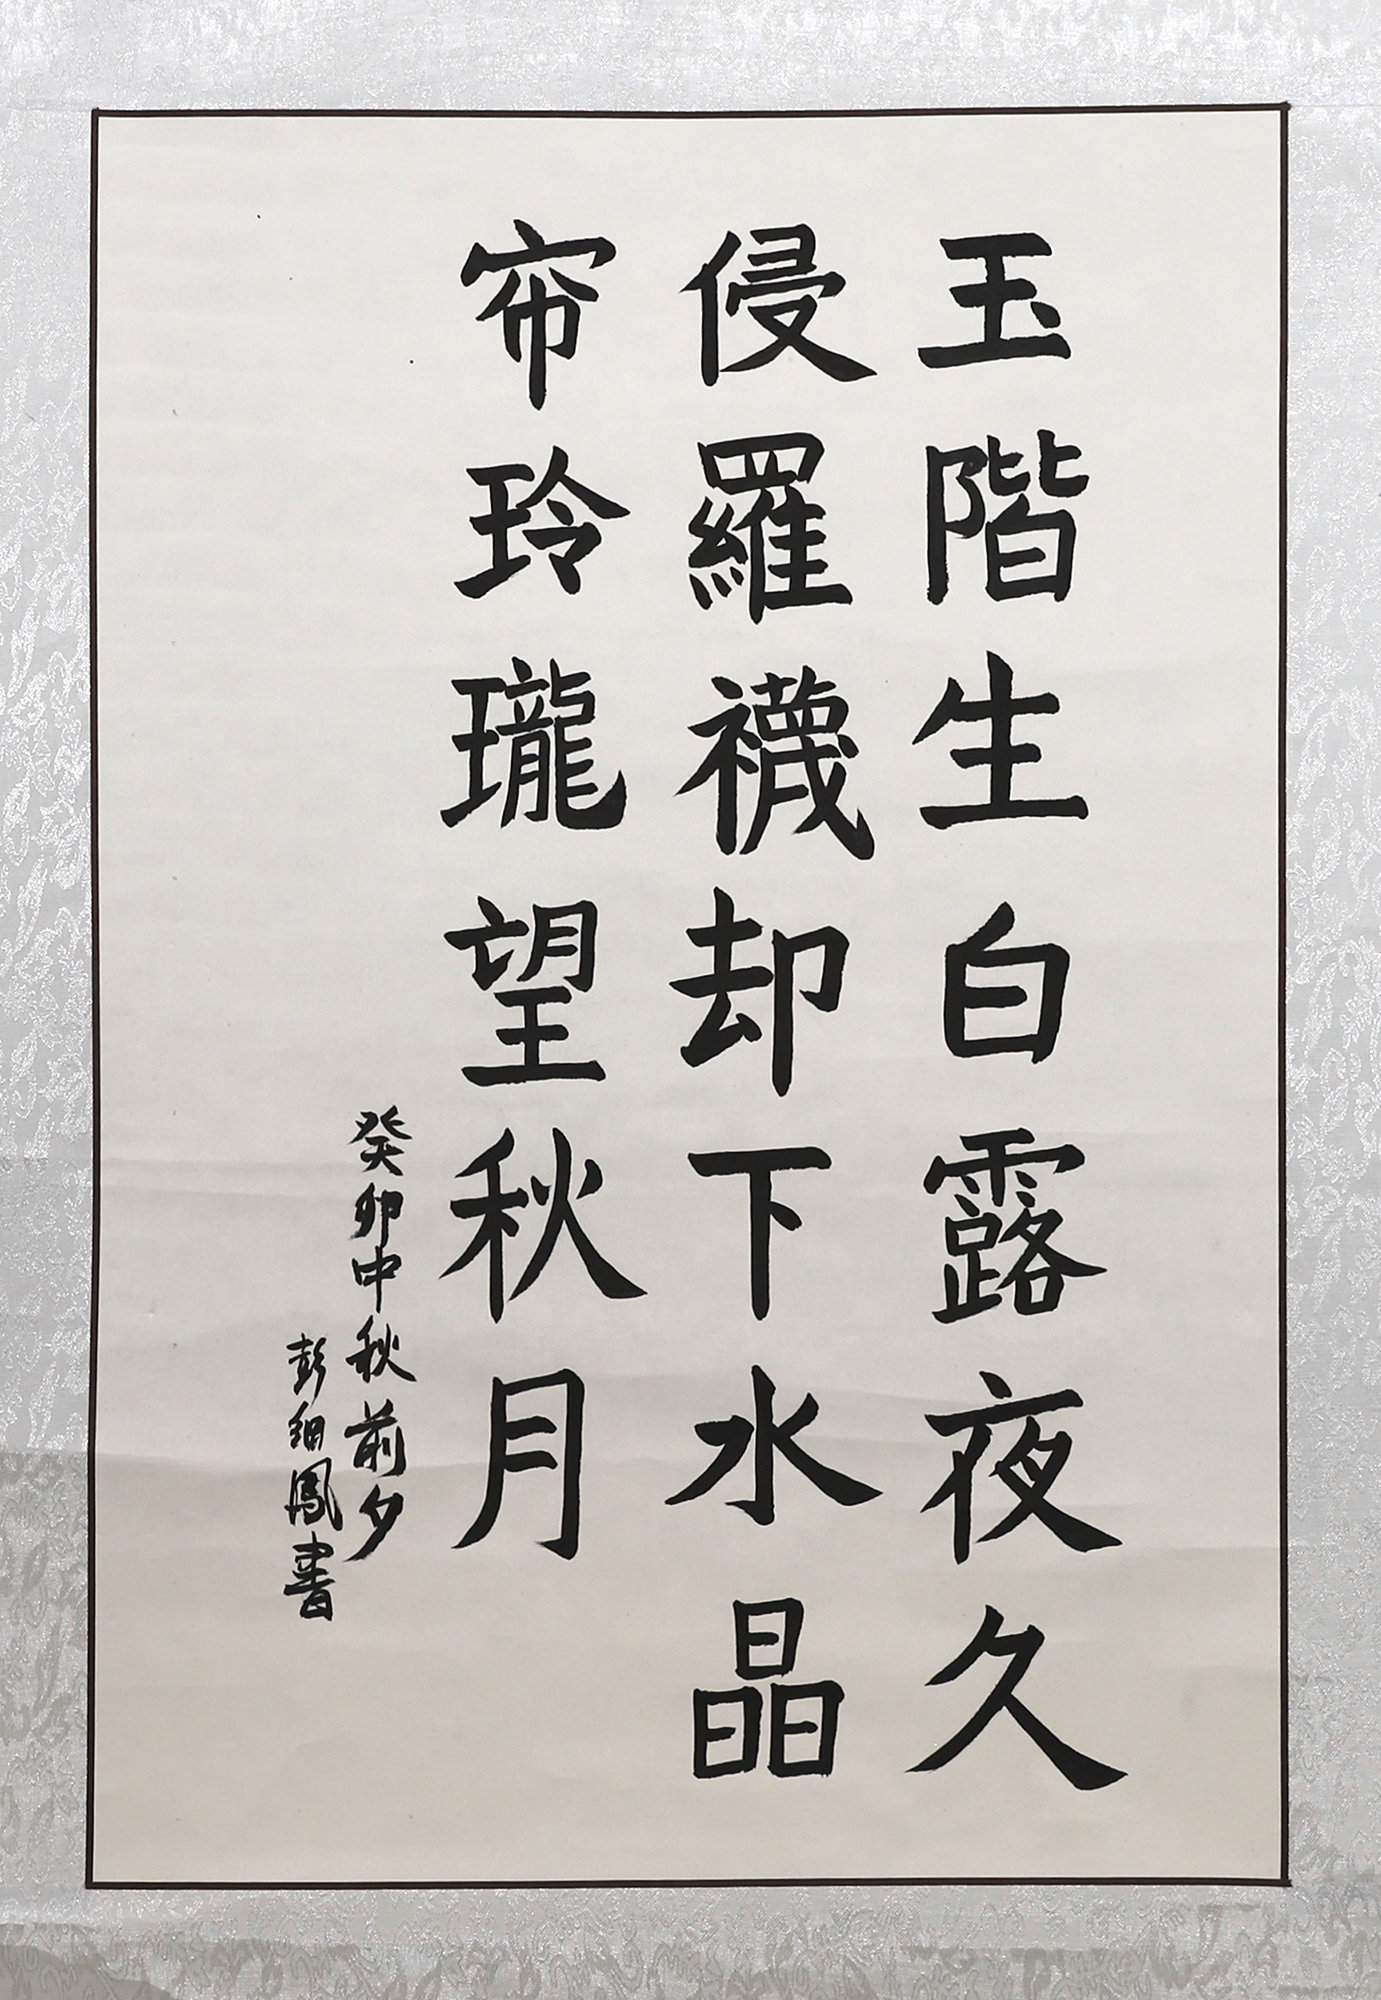 玉階生白露夜久
侵羅襪却下水晶
帘玲瓏望秋月
癸卯中秋前夕
彭細鳳書